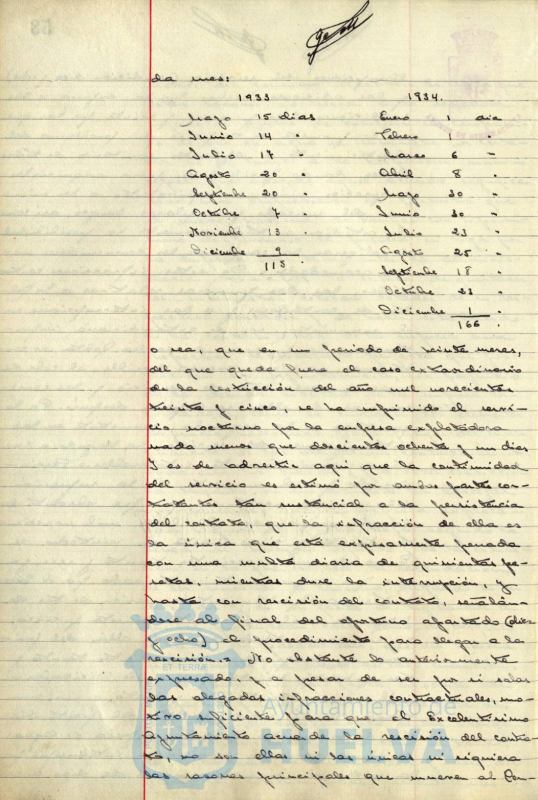 da mes:
1933 1934.
Mayo 15 dias Enero 1 dia
Junio 14 " Febrero 1 "
Julio 17 " Marzo 6 "
Agosto 20 " Abril 8 "
Septiembre 20 " Mayo 30 "
Octubre 7 " Junio 30 "
Noviembre 13 " Julio 23 "
Diciembre 9 Agosto 25 "
115 . Septiembre 18 "
Octubre 23 "
Diciembre 1 .
166 .
o sea, que en un periodo de veinte meses,
del que queda fuera el caso extraordinario
de la restricción del año mil novecientos
treinta y cinco, se ha suprimido el servi-
cio nocturno por la empresa explotadora
nada menos que doscientos ochenta y un dias
Y es de advertir aqui que la continuidad
del servicio se estimó por ambas partes con-
tratantes tan sustancial a la persistencia
del contrato, que la infracción de ella es
la única que está expresamente penada
con una multa diaria de quinientas pe-
setas, mientras dure la interrupción, y
hasta con rescisión del contrato, señalán-
dose al final del oportuno apartado (diez
y ocho) el procedimiento para llegar a la
rescisión.= No obstante lo anteriormente
expresado, y a pesar de ser por si solas
las alegadas infracciones contractuales, mo-
tivo suficiente para que el Excelentísimo
Ayuntamiento acuerde la rescisión del contra-
to, no son ellas ni las únicas ni siquiera
las razones principales que mueven al Con-
ET TERRÆ
Ayuntamiento de
HUELVA